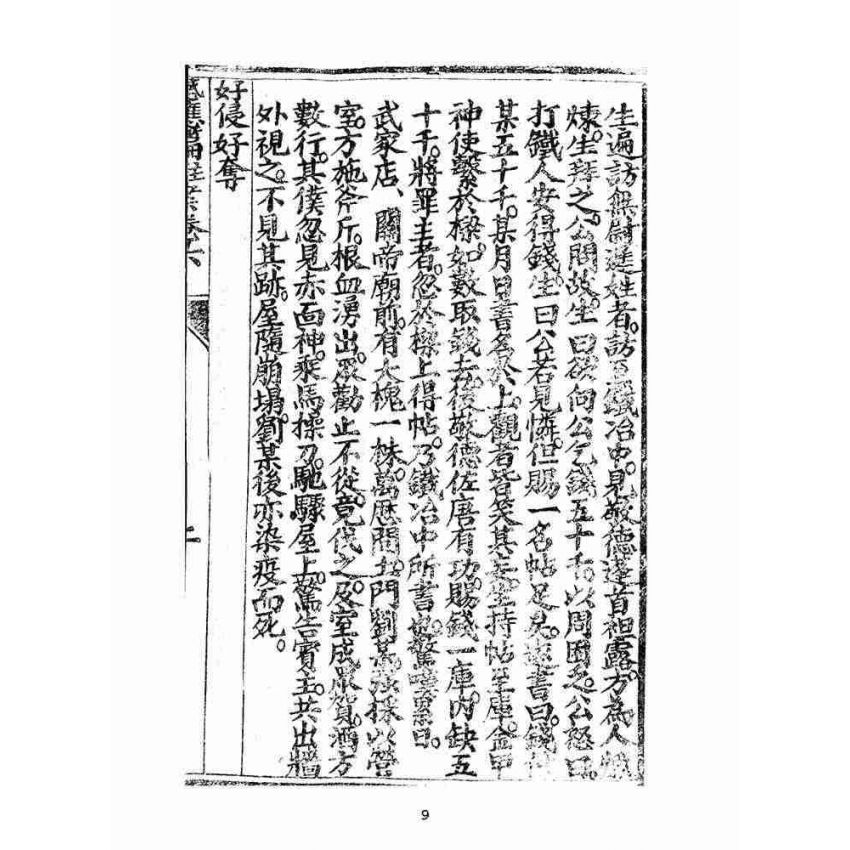 生遍訪無尉遲姓者。訪至鐵冶中。見敬德蓬首袒露。方為人
煉。生拜之。公問故。生曰。欲向公乞錢五十千。以周困乏。公怒曰。
打鐵人安得錢。生曰。公若見憐。但賜一名帖足矣。書曰。錢付
某五十千。某月日書名於上。觀者皆笑其妄。生持帖至庫。金甲
神使繫於樑。如數取錢去。後敬德佐唐有功。賜錢一庫。內缺五
十千。將罪主者。忽於樑上得帖。乃鐵冶中所書也。驚嘆累日。
武家店、關帝廟前。有大槐一株。萬曆間。土門劉某。強採以營
室。方施斧斤。根血湧出。眾勸止不從。竟伐之。及室成眾賀。酒方
數行。其僕忽見赤面神。乘馬操刀。馳驟屋上。驚告賓主。共出牆
外視之。不見其跡。屋隨崩塌。劉某後亦染疫而死。
好侵好奪
感應篇註案卷之六
二
9